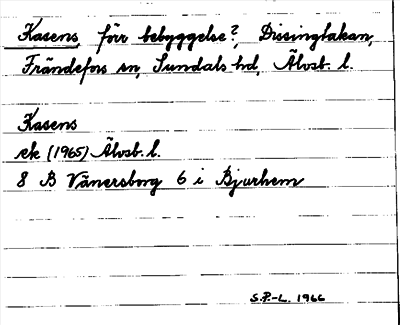 Kasens, förr bebyggelse?, Dissinglakan,
Frändefors sn, Sundals hd, Älvsb. l.
Kasens
ek (1965) Älvsb. l.
8 B Vänersborg 6 i Bjurhem
S.P.-L. 1966